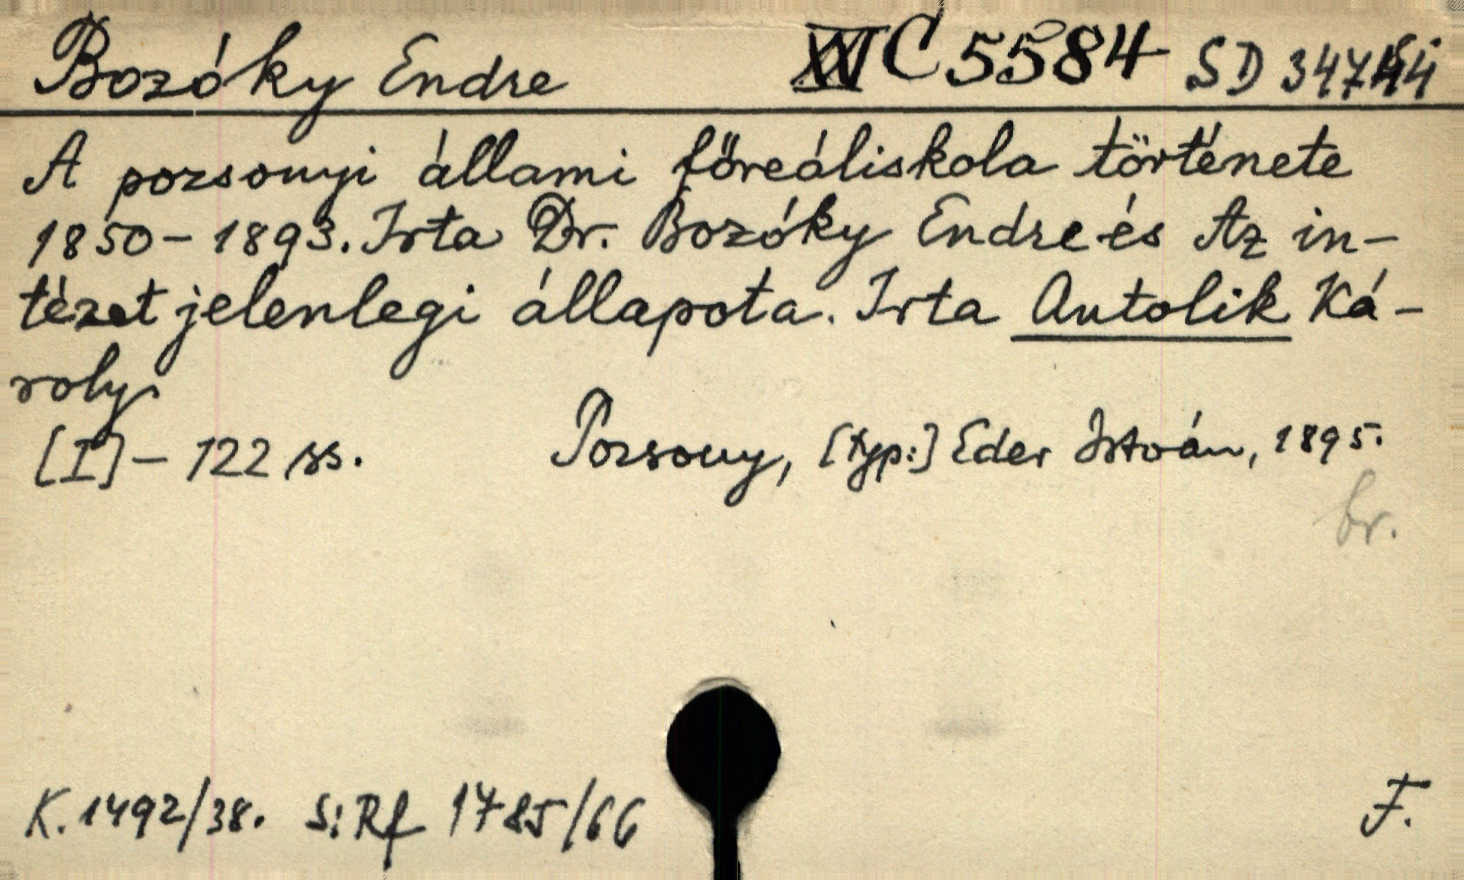 Bozóky Endre C 5584 SD
A pozsonyi állami főreáliskola története
1850-1893. Irta Dr. Bozóky Endre és Az in-
tézet jelenlegi állapota. Irta Antolik Ká-
roly.
[I] - 122 ss. Pozsony, [typ:] Eder István, 1895.
br.
K. 1492/38. S: Rf 1785/66 F.